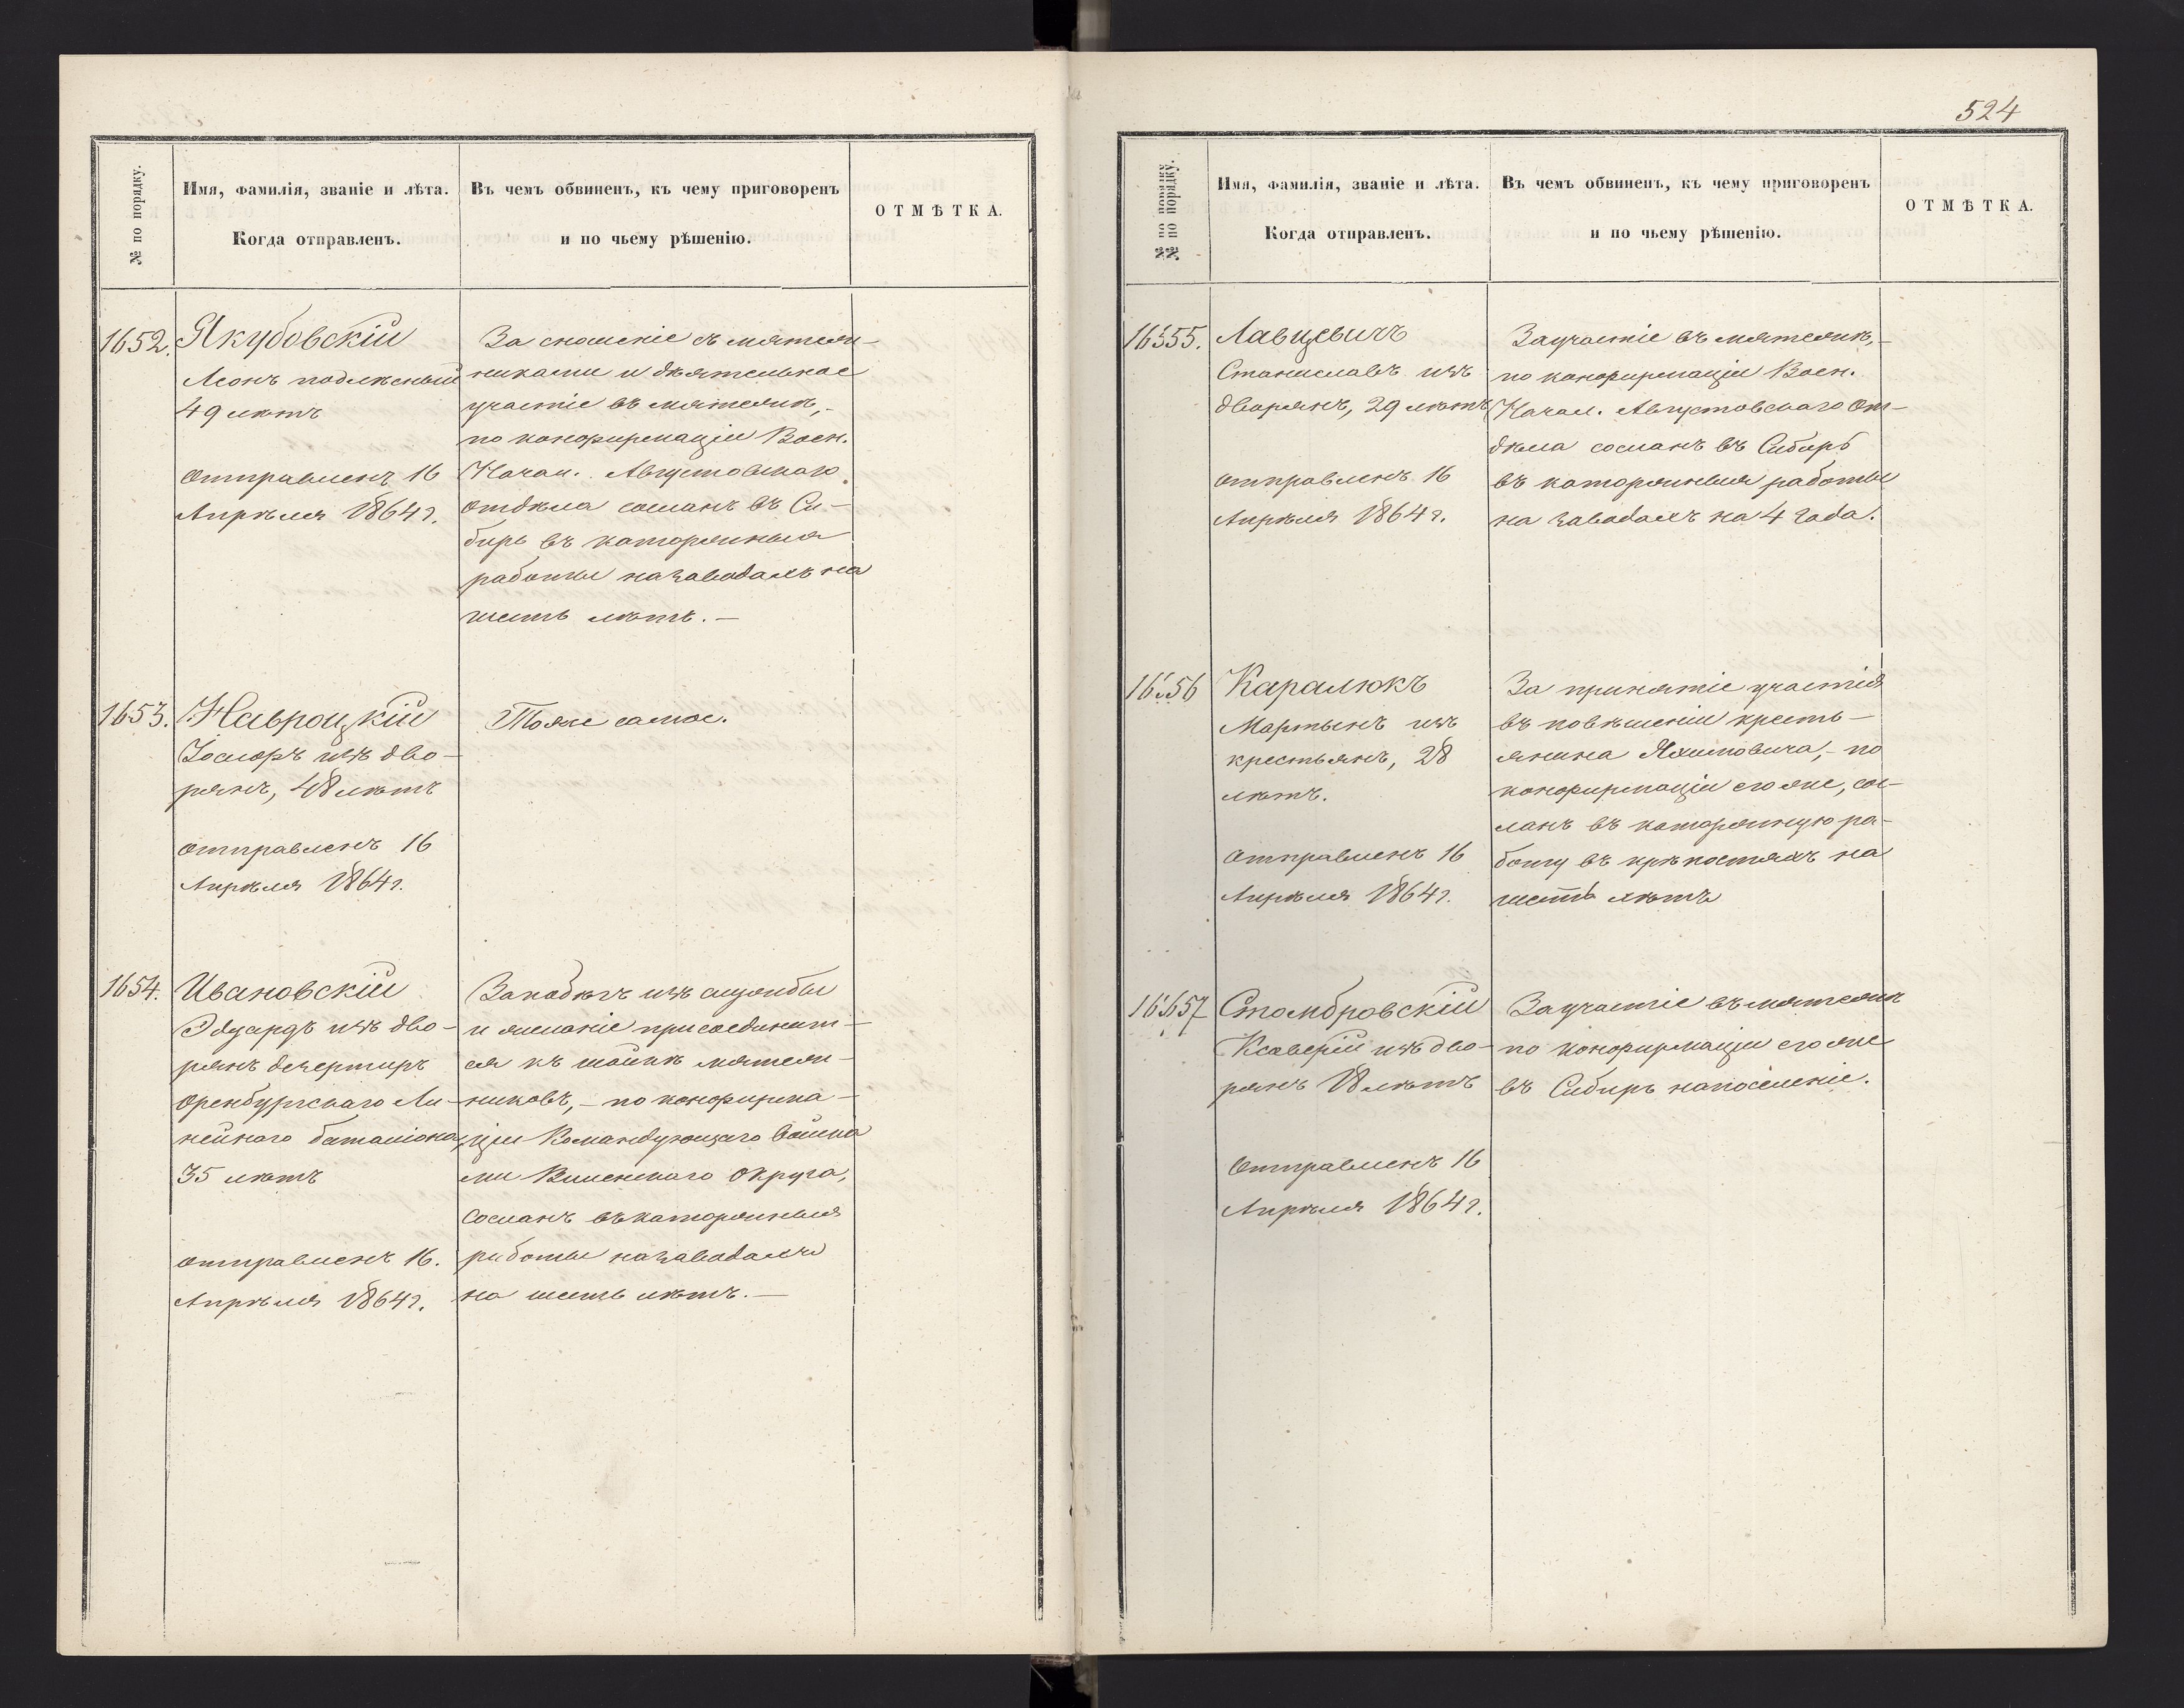 524
№ по порядку.
Имя, фамилія, званіе и лѣта.
Когда отправленъ.
Въ чемъ обвиненъ, къ чему приговоренъ
и по чьему рѣшенію.
ОТМѢТКА.
1652.
Якубовскій
Леонъ подлѣсный
49 лѣтъ
отправленъ 16
Апрѣля 1864 г.
За сношеніе съ мятеж-
никами и дѣятельное
участіе въ мятежѣ,-
по конфирмаціи Воен.
Начал. Августовскаго
отдѣла сосланъ въ Си-
бирь въ каторжныя
работы на заводахъ на
шесть лѣтъ. —
1653.
Навроцкій
Іосифъ изъ дво-
рянъ, 48 лѣтъ
отправленъ 16
Апрѣля 1864 г.
Тоже самое.
1654.
Ивановскій
Эдуардъ изъ дво-
рянъ дезертиръ
Оренбургскаго Ли-
нейнаго баталіона,
35 лѣтъ
отправленъ 16.
Апрѣля 1864 г.
За побѣгъ изъ службы
и желаніе присоединит-
ся къ шайкѣ мятеж-
никовъ, - по конфирма-
ціи Командующаго Войска
ми Виленскаго Округа,
сосланъ въ каторжныя
работы на заводахъ
на шесть лѣтъ. —
№ по порядку.
Имя, фамилія, званіе и лѣта.
Когда отправленъ.
Въ чемъ обвиненъ, къ чему приговоренъ
и по чьему рѣшенію.
ОТМѢТКА.
1655.
Лавцевичъ
Станиславъ изъ
дворянъ, 29 лѣтъ
отправленъ 16
Апрѣля 1864 г.
За участіе въ мятежѣ,-
по конфирмаціи Воен.
Начал. Августовскаго От-
дѣла сосланъ въ Сибирь
въ каторжныя работы
на заводахъ на 4 года.
1656
Каралюкъ
Мартынъ изъ
крестьянъ, 28
лѣтъ.
отправленъ 16
Апрѣля 1864 г.
За принятіе участія
въ повѣшеніи кресть-
янина Яхимовича, - по
конфирмаціи его же, сос-
ланъ въ каторжную ра-
боту въ крѣпостяхъ на
шесть лѣтъ
1657
Стомбровскій
Ксаверій изъ дво-
рянъ 18 лѣтъ
Отправленъ 16
Апрѣля 1864 г.
За участіе въ мятежѣ
по конфирмаціи его же
въ Сибирь на поселеніе.